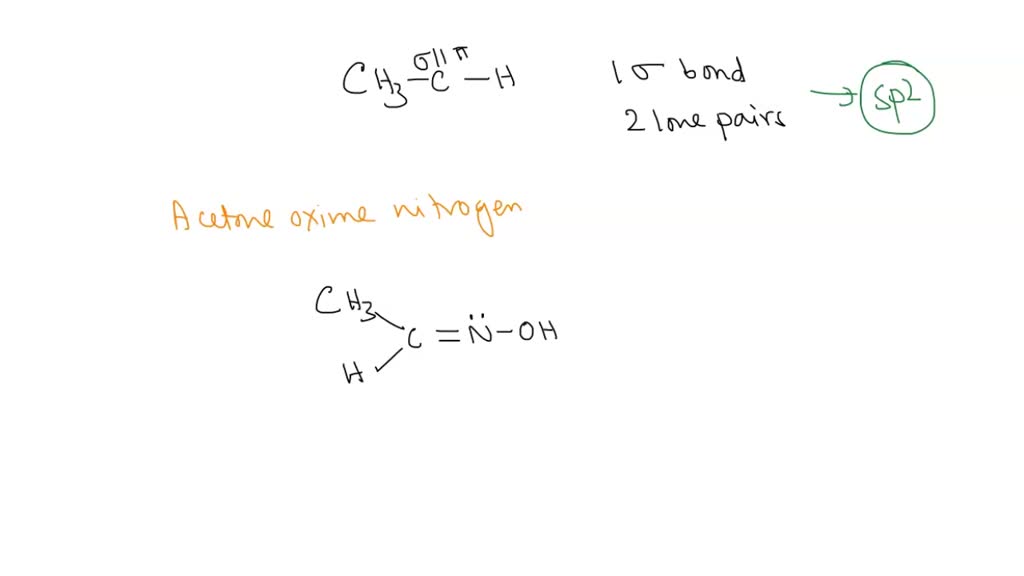 σ || π
CH3 - C - H
1 σ bond
2 lone pairs
→ sp2
Acetone oxime nitrogen
CH3
C = N̈ - OH
H